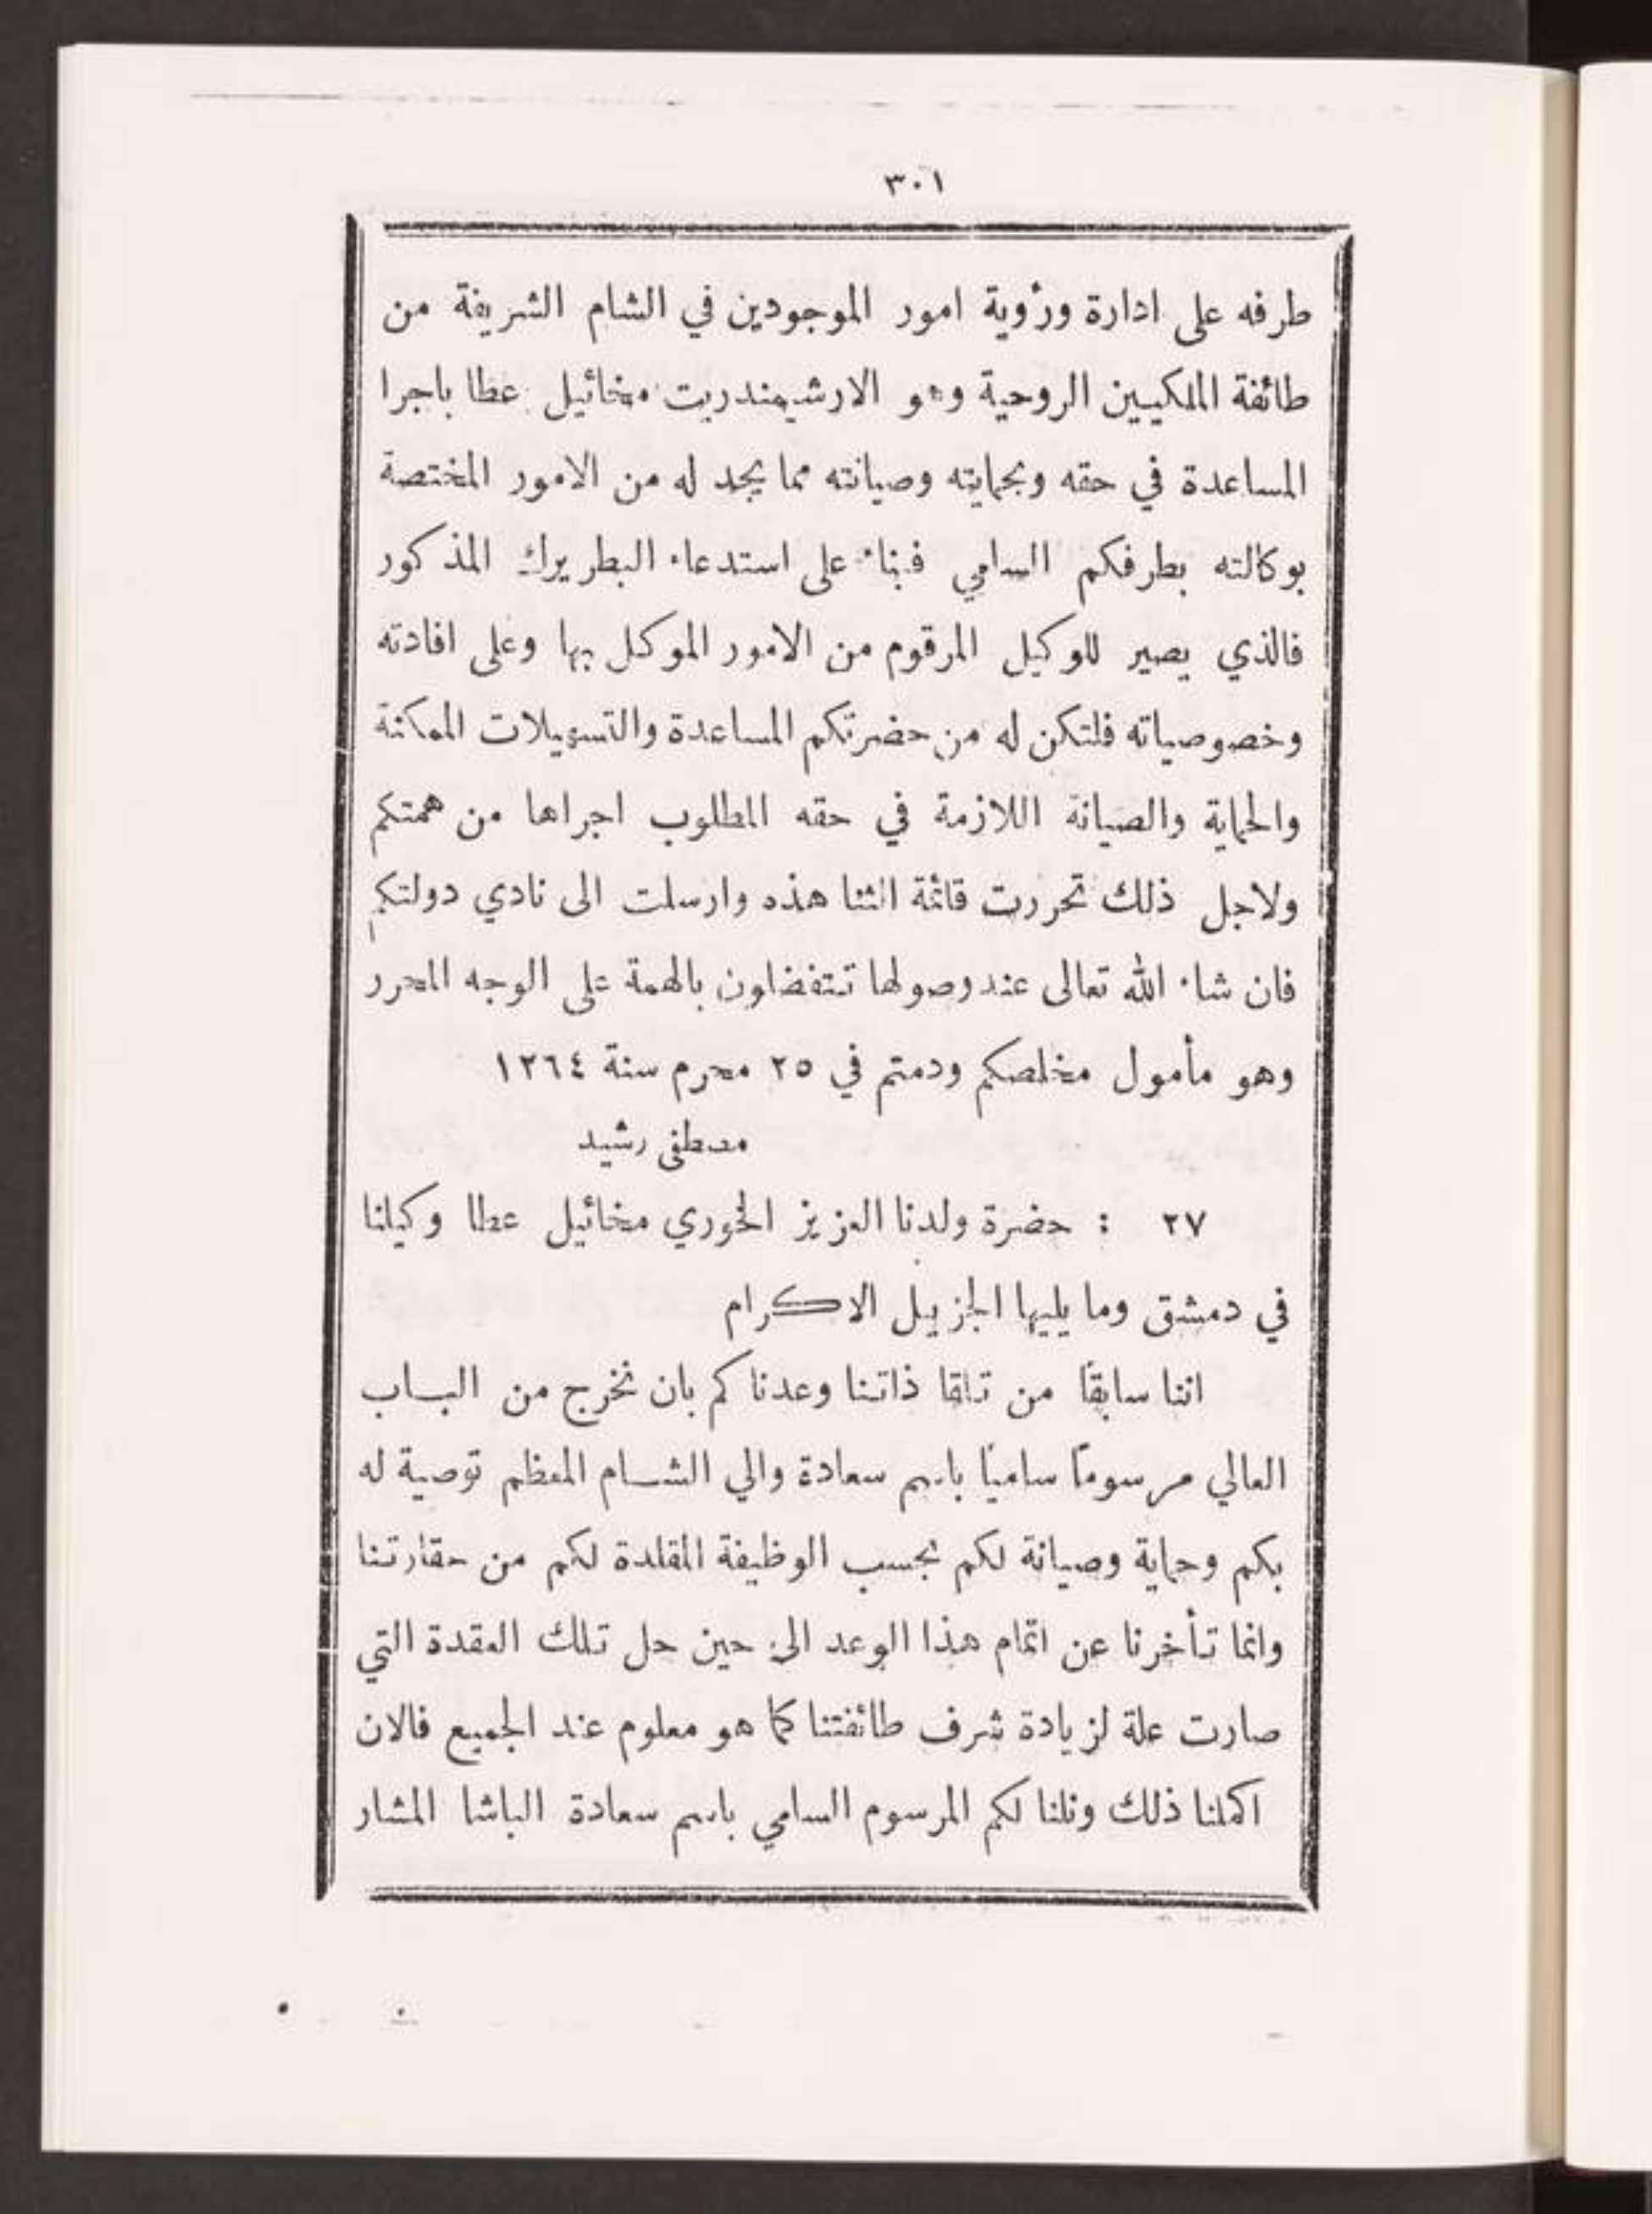 ٣٠١
طرفه على ادارة ورؤية امور الموجودين في الشام الشريفة من
طائفة الملكيين الروحية وهو الارشيمندريت مخائيل عطا باجرا
المساعدة في حقه وبحمايته وصيانته مما يجد له من الامور المختصة
بوكالته بطرفكم السامي فبناء على استدعاء البطريرك المذكور
فالذي يصير للوكيل المرقوم من الامور الموكل بها وعلى افادته
وخصوصياته فلتكن له من حضرتكم المساعدة والتسهيلات الممكنة
والحماية والصيانة اللازمة في حقه المطلوب اجراها من همتكم
ولاجل ذلك تحررت قائمة الثنا هذه وارسلت الى نادي دولتكم
فان شاء الله تعالى عند وصولها تتفضلون بالهمة على الوجه المحرر
وهو مأمول مخلصكم ودمتم في ٢٥ محرم سنة ١٢٦٤
مصطفى رشيد
٢٧ : حضرة ولدنا العزيز الخوري مخائيل عطا وكيلنا
في دمشق وما يليها الجزيل الاكرام
اننا سابقًا من تلقا ذاتنا وعدناكم بان نخرج من الباب
العالي مرسومًا ساميًا باسم سعادة والي الشام المعظم توصية له
بكم وحماية وصيانة لكم بحسب الوظيفة المقلدة لكم من حقارتنا
وانما تأخرنا عن اتمام هذا الوعد الى حين حل تلك العقدة التي
صارت علة لزيادة شرف طائفتنا كما هو معلوم عند الجميع فالان
اكملنا ذلك ونلنا لكم المرسوم السامي باسم سعادة الباشا المشار